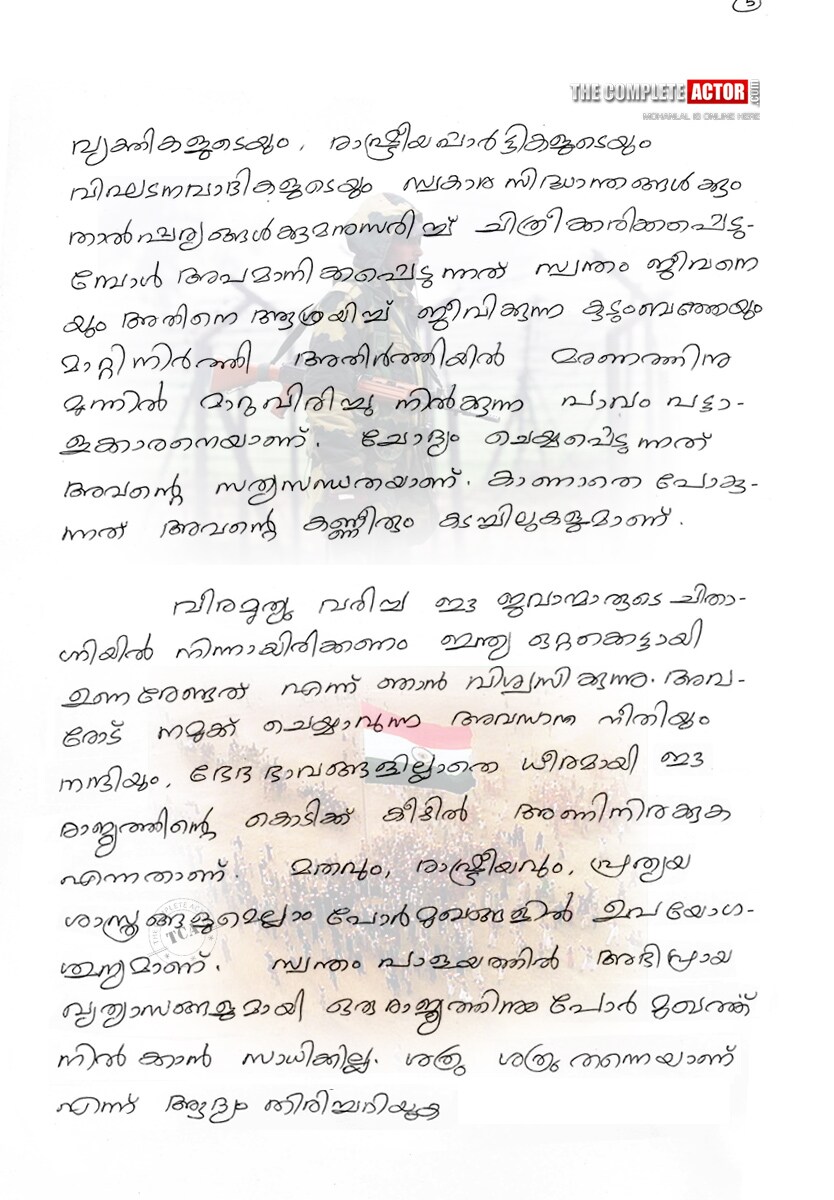 5
THE COMPLETE ACTOR
MOHANLAL IS ONLINE HERE
വ്യക്തികളുടെയും, രാഷ്ട്രീയപാർട്ടികളുടെയും
വിഘടനവാദികളുടെയും സ്വകാര്യ സിദ്ധാന്തങ്ങൾക്കും
താൽപ്പര്യങ്ങൾക്കുമനുസരിച്ച് ചിത്രീകരിക്കപ്പെടു-
മ്പോൾ അപമാനിക്കപ്പെടുന്നത് സ്വന്തം ജീവനെ
യും അതിനെ ആശ്രയിച്ച് ജീവിക്കുന്ന കുടുംബത്തെയും
മാറ്റിനിർത്തി അതിർത്തിയിൽ മരണത്തിനു
മുന്നിൽ മാറുവിരിച്ചു നിൽക്കുന്ന പാവം പട്ടാ-
ളക്കാരനെയാണ്. ചോദ്യം ചെയ്യപ്പെടുന്നത്
അവന്റെ സത്യസന്ധതയാണ്. കാണാതെ പോകു-
ന്നത് അവന്റെ കണ്ണീരും കടച്ചിലുകളുമാണ്.
വീരമൃത്യു വരിച്ച ഈ ജവാന്മാരുടെ ചിതാ-
ഗ്നിയിൽ നിന്നായിരിക്കണം ഇന്ത്യ ഒറ്റക്കെട്ടായി
ഉണരേണ്ടത് എന്ന് ഞാൻ വിശ്വസിക്കുന്നു. അവ-
രോട് നമുക്ക് ചെയ്യാവുന്ന അവസാന നീതിയും
നന്ദിയും, ഭേദഭാവങ്ങളില്ലാതെ ധീരമായി ഈ
രാജ്യത്തിന്റെ കൊടിക്ക് കീഴിൽ അണിനിരക്കുക
എന്നതാണ്. മതവും, രാഷ്ട്രീയവും, പ്രത്യയ
ശാസ്ത്രങ്ങളുമെല്ലാം പോർമുഖങ്ങളിൽ ഉപയോഗ-
ശൂന്യമാണ്. സ്വന്തം പാളയത്തിൽ അഭിപ്രായ
വ്യത്യാസങ്ങളുമായി ഒരു രാജ്യത്തിനും പോർ മുഖത്ത്
നിൽക്കാൻ സാധിക്കില്ല. ശത്രു ശത്രു തന്നെയാണ്
എന്ന് ആദ്യം തിരിച്ചറിയുക